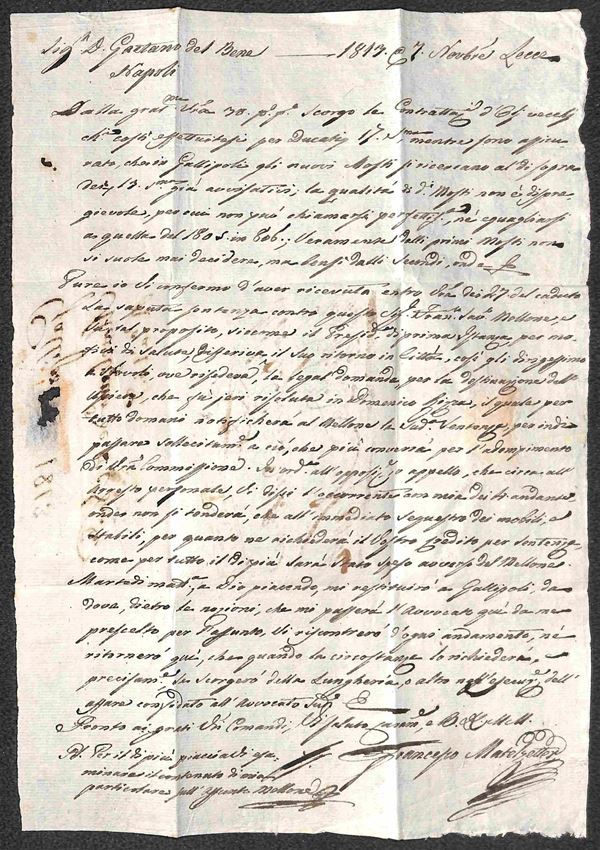 Sig.r D. Gaetano del Bene — 1813. 7. Novbre Lecce
Napoli
Dalla grat.ma V.ra 30. p.º p.º Scorgo le Contrattaz.i d'Ogli vecchi
costì effettuitesi per Ducati 17. S.ma, mentre sono assicu-
rato, che in Gallipoli gli nuovi Mosti si ricercano al di sopra
de 13. S.ma già avvisativi; la qualità di d.i Mosti non è dispre-
gievole, per cui non può chiamarsi perfettiss.a, nè eguagliarsi
a quella del 1805. in 806.; Veramente dalli primi Mosti non
si suole mai decidere, ma bensì dalli Secondi, onde
Pure io Vi confermo d'aver ricevuta entro V.ra dei 27 del caduto
la saputa sentenza contro questo Sig.r Fran.co Sav.o Mellone, e
Sul tal proposito, siccome il Presid.e di prima Istanza, per mo-
di Salute differiva il Suo ritorno in Città, così gli
ove risedeva, la legal domanda, per la destinazione dell'
Usciere, che fù jeri risoluta in Domenico il quale per
tutto domani notificherà al Mellone la Sud.a Sentenza, per indi
passare Sollecitam.e a ciò, che più converrà per l'adempimento
di V.ra Commissione. In ord.e all'opposiz.e, o appello, che circa all'
Arresto personale, Vi dissi l'occorrente con mia dei 4 andante
non si tenderà, che all'immediato Sequestro dei mobili, e
Stabili, per quanto ne richiederà il Vostro Credito per Sentenza
come per tutto il di più Sarà Stato Speso avverso del Mellone.
Martedì matt.a, a Dio piacendo, mi restituirò in Gallipoli, da
dove, dietro le nozioni, che mi passerà l'Avvocato quì da me
prescelto per l'assunto, Vi riscontrerò d'ogni andamento, nè
ritornerò quì, che quando la circostanza lo richiederà,
precisam.e Se Scorgerò della Lungheria, o altro nell'esecuz.e dell'
affare confidato all'Avvocato Sud.o
Pronto ai grati V.ri Comandi, Vi Saluto, e B. le M.M.
Francesco
P.S. Per il di più piaccia di esa-
minare il contenuto di mia
particolare Sull'assunto Mellone